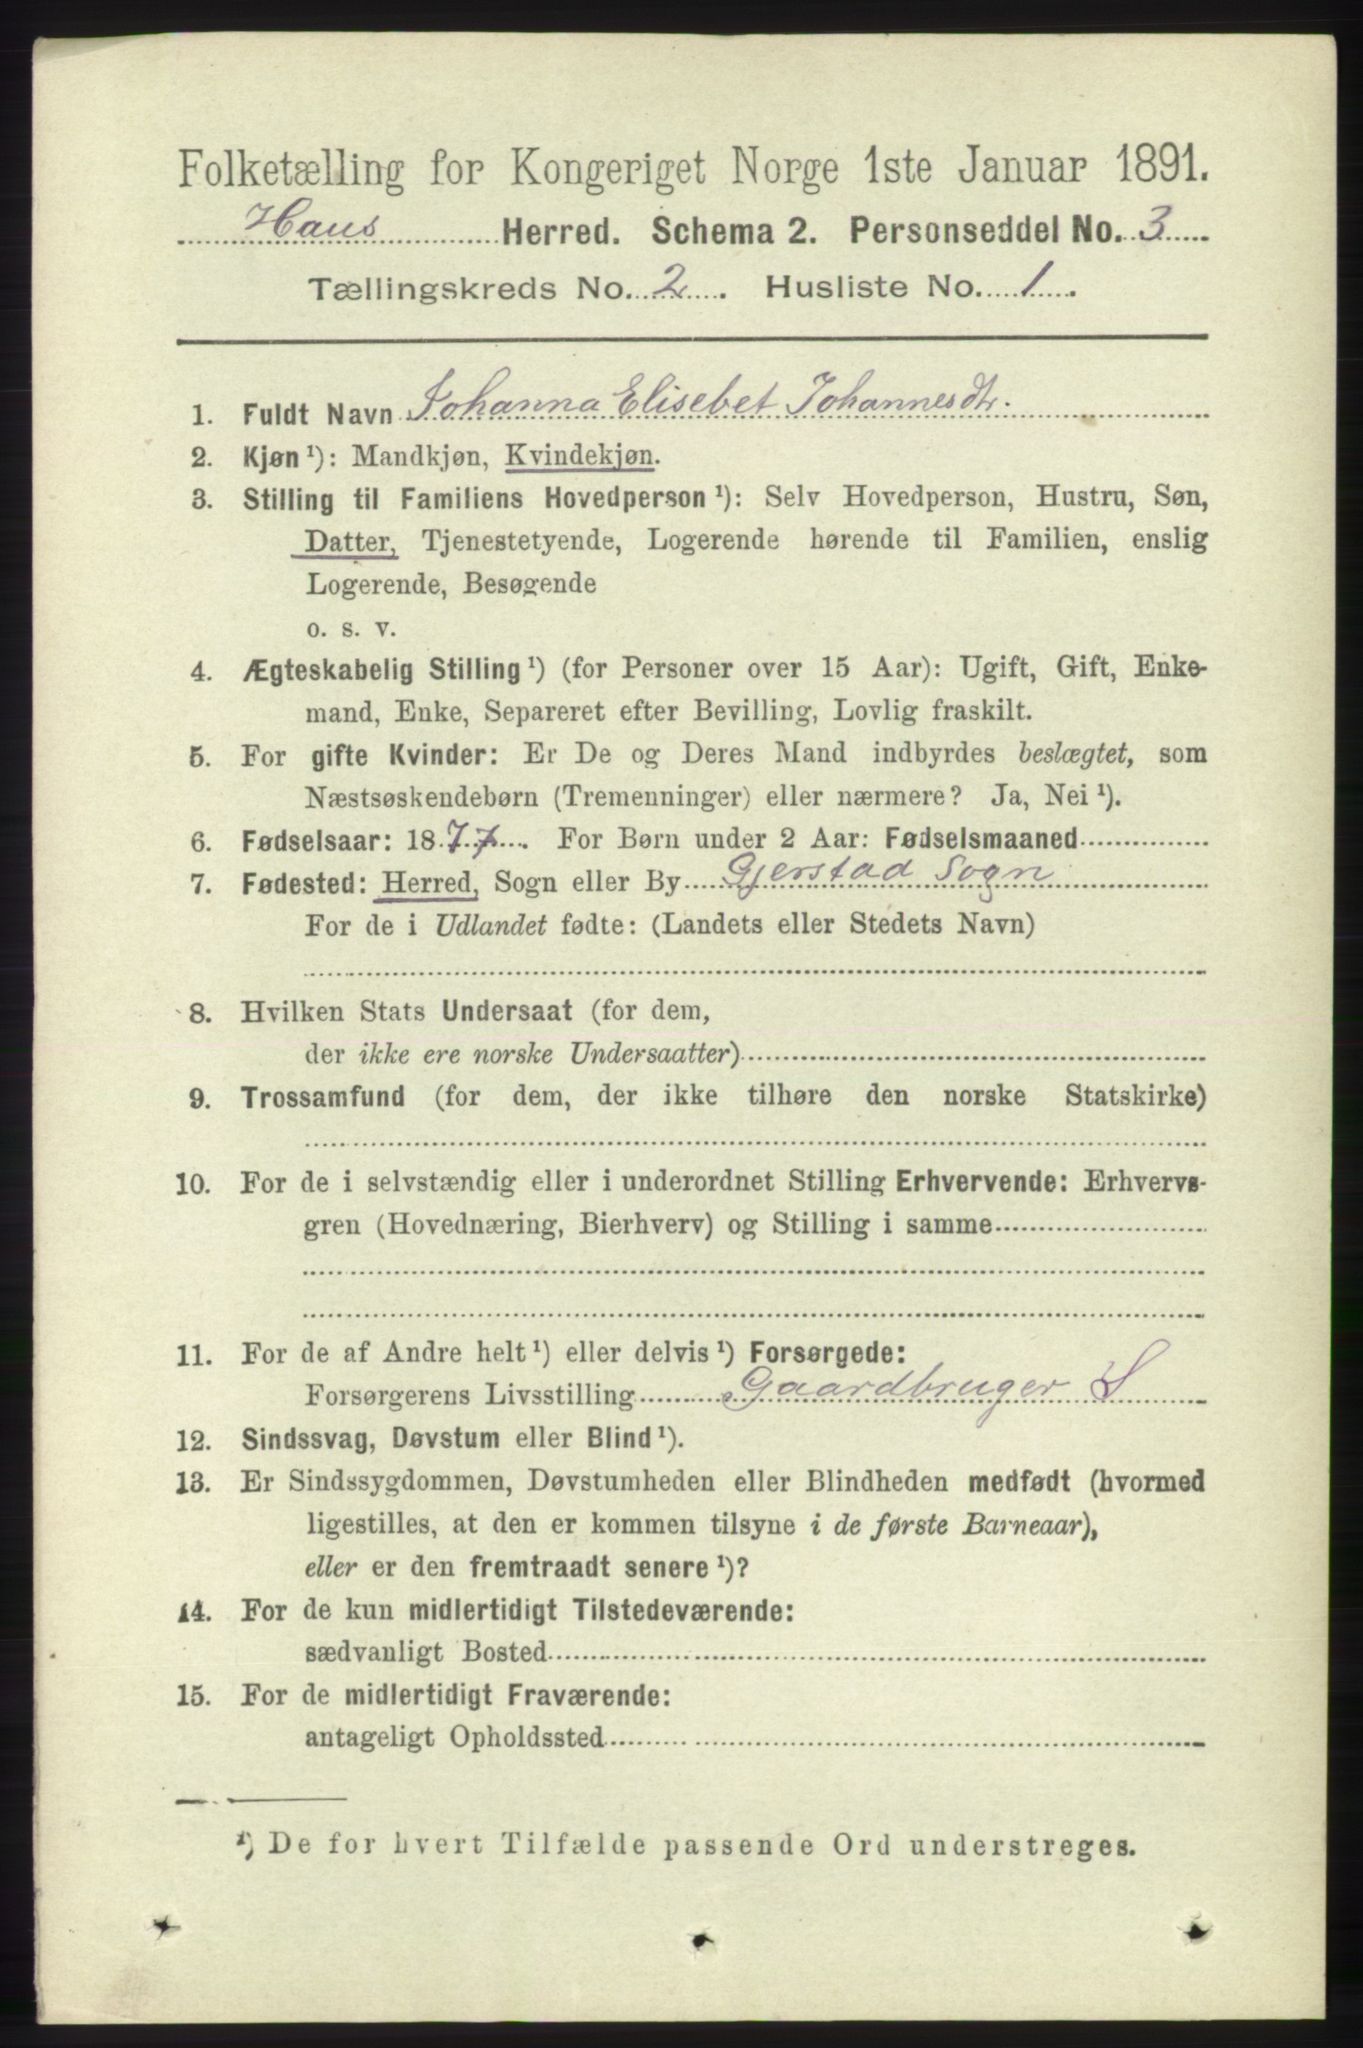 Folketælling for Kongeriget Norge 1ste Januar 1891.
Haus Herred. Schema 2. Personseddel No. 3
Tællingskreds No. 2. Husliste No. 1.
1. Fuldt Navn Johanna Elisebet Johannesdtr.
2. Kjøn ¹): Mandkjøn, Kvindekjøn.
3. Stilling til Familiens Hovedperson ¹): Selv Hovedperson, Hustru, Søn,
Datter, Tjenestetyende, Logerende hørende til Familien, enslig
Logerende, Besøgende
o. s. v.
4. Ægteskabelig Stilling ¹) (for Personer over 15 Aar): Ugift, Gift, Enke-
mand, Enke, Separeret efter Bevilling, Lovlig fraskilt.
5. For gifte Kvinder: Er De og Deres Mand indbyrdes beslægtet, som
Næstsøskendebørn (Tremenninger) eller nærmere? Ja, Nei ¹).
6. Fødselsaar: 1877. For Børn under 2 Aar: Fødselsmaaned
7. Fødested: Herred, Sogn eller By Gjerstad Sogn
For de i Udlandet fødte: (Landets eller Stedets Navn)
8. Hvilken Stats Undersaat (for dem,
der ikke ere norske Undersaatter)
9. Trossamfund (for dem, der ikke tilhøre den norske Statskirke)
10. For de i selvstændig eller i underordnet Stilling Erhvervende: Erhvervs-
gren (Hovednæring, Bierhverv) og Stilling i samme
11. For de af Andre helt ¹) eller delvis ¹) Forsørgede:
Forsørgerens Livsstilling Gaardbruger S
12. Sindssvag, Døvstum eller Blind ¹).
13. Er Sindssygdommen, Døvstumheden eller Blindheden medfødt (hvormed
ligestilles, at den er kommen tilsyne i de første Barneaar),
eller er den fremtraadt senere ¹)?
14. For de kun midlertidigt Tilstedeværende:
sædvanligt Bosted
15. For de midlertidigt Fraværende:
antageligt Opholdssted
¹) De for hvert Tilfælde passende Ord understreges.